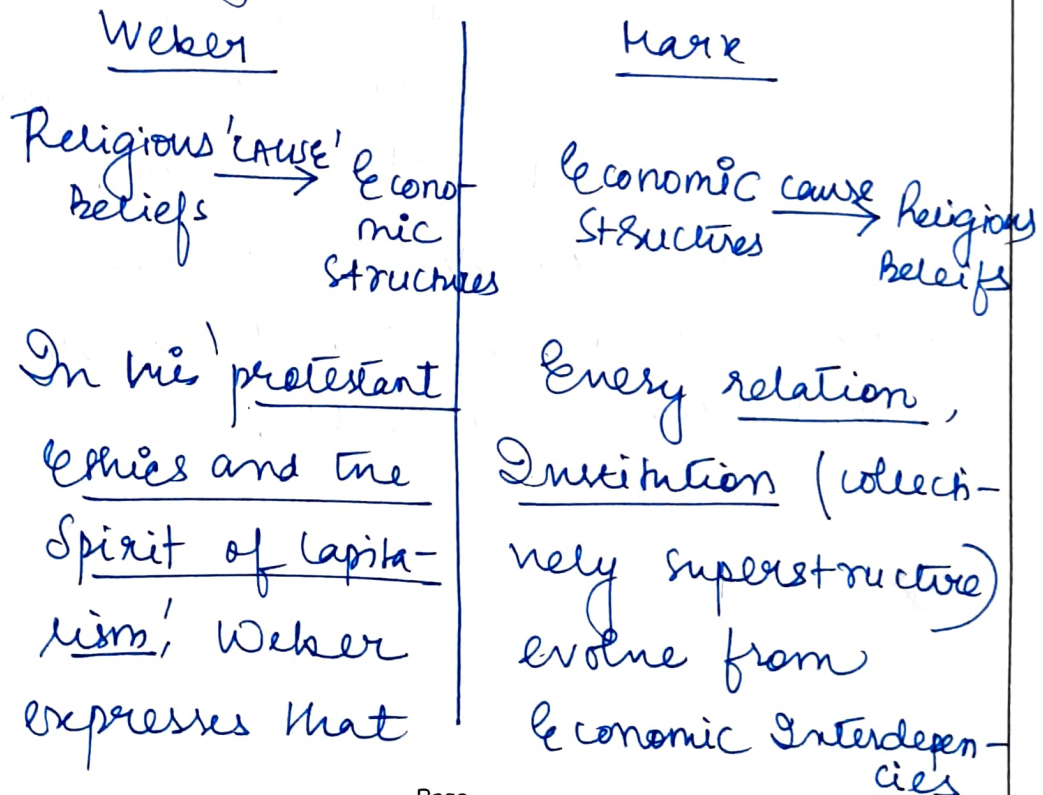 Weber
Religious 'CAUSE' → Econo-
Beliefs
mic
structures
In his 'protestant
Ethics and the
Spirit of Capita-
lism', Weber
expresses that
Marx
Economic cause → Religious
Structures
Beleifs
Every relation,
Institution (collecti-
vely superstructure)
evolve from
Economic Interdepen-
cies